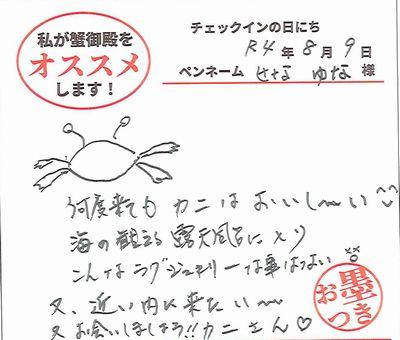 私が蟹御殿を
オススメ
します！
チェックインの日にち
R4年8月9日
ペンネーム せな ゆな 様
何度来ても カニは おいし〜い
海の観える 露天風呂に入り
こんな ラグジュアリーな事はない
又、近い内に来たい〜
又お会いしましょう!!カニさん♡
お墨つき